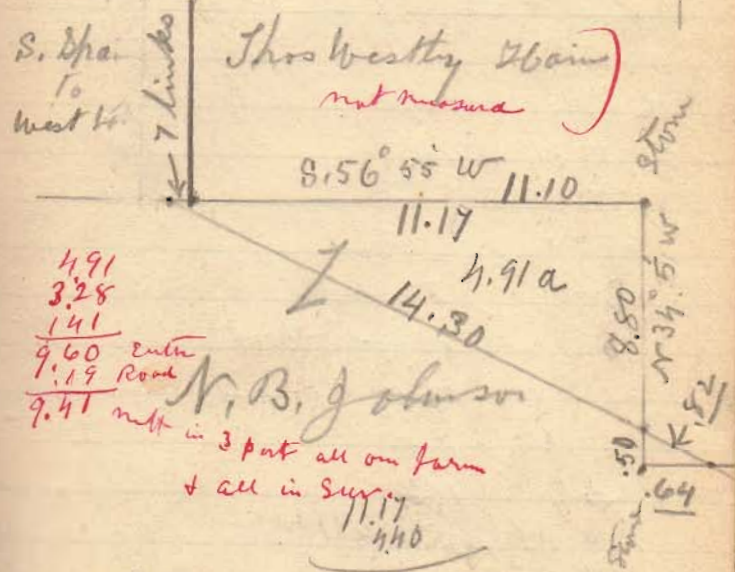 S. Spa.
To
West
7 links
Thos Westly Hain
not measurd
Stone
S. 56° 55' W 11.10
11.17
4.91 a
14.30
8.80
N 34° 5' W
.82
.50
.64
Stone
Z
4.91
3.28
1.41
9.60 Entr
.19 Road
9.41 nett in 3 part all our farm
& all in Sur.
N. B. Johnson
11.17
4.40